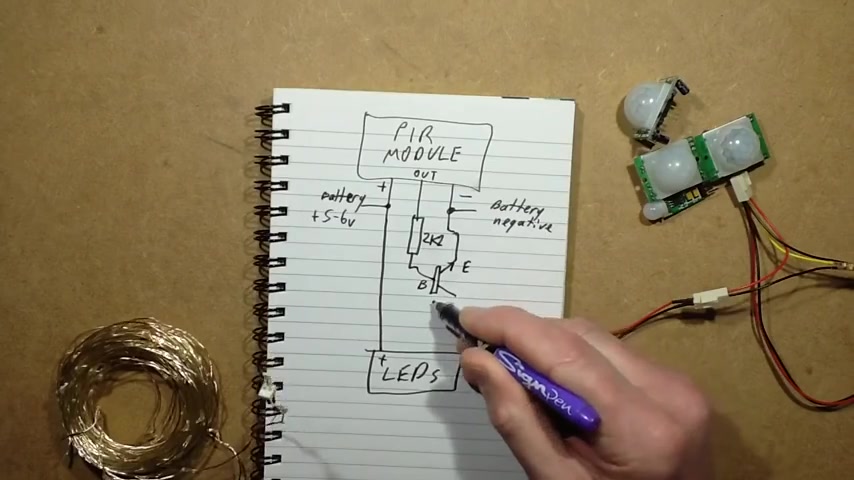 PIR
MODULE
OUT
+
−
Battery
+5-6v
Battery
negative
2K2
E
B
+
LEDS
Sign Pen